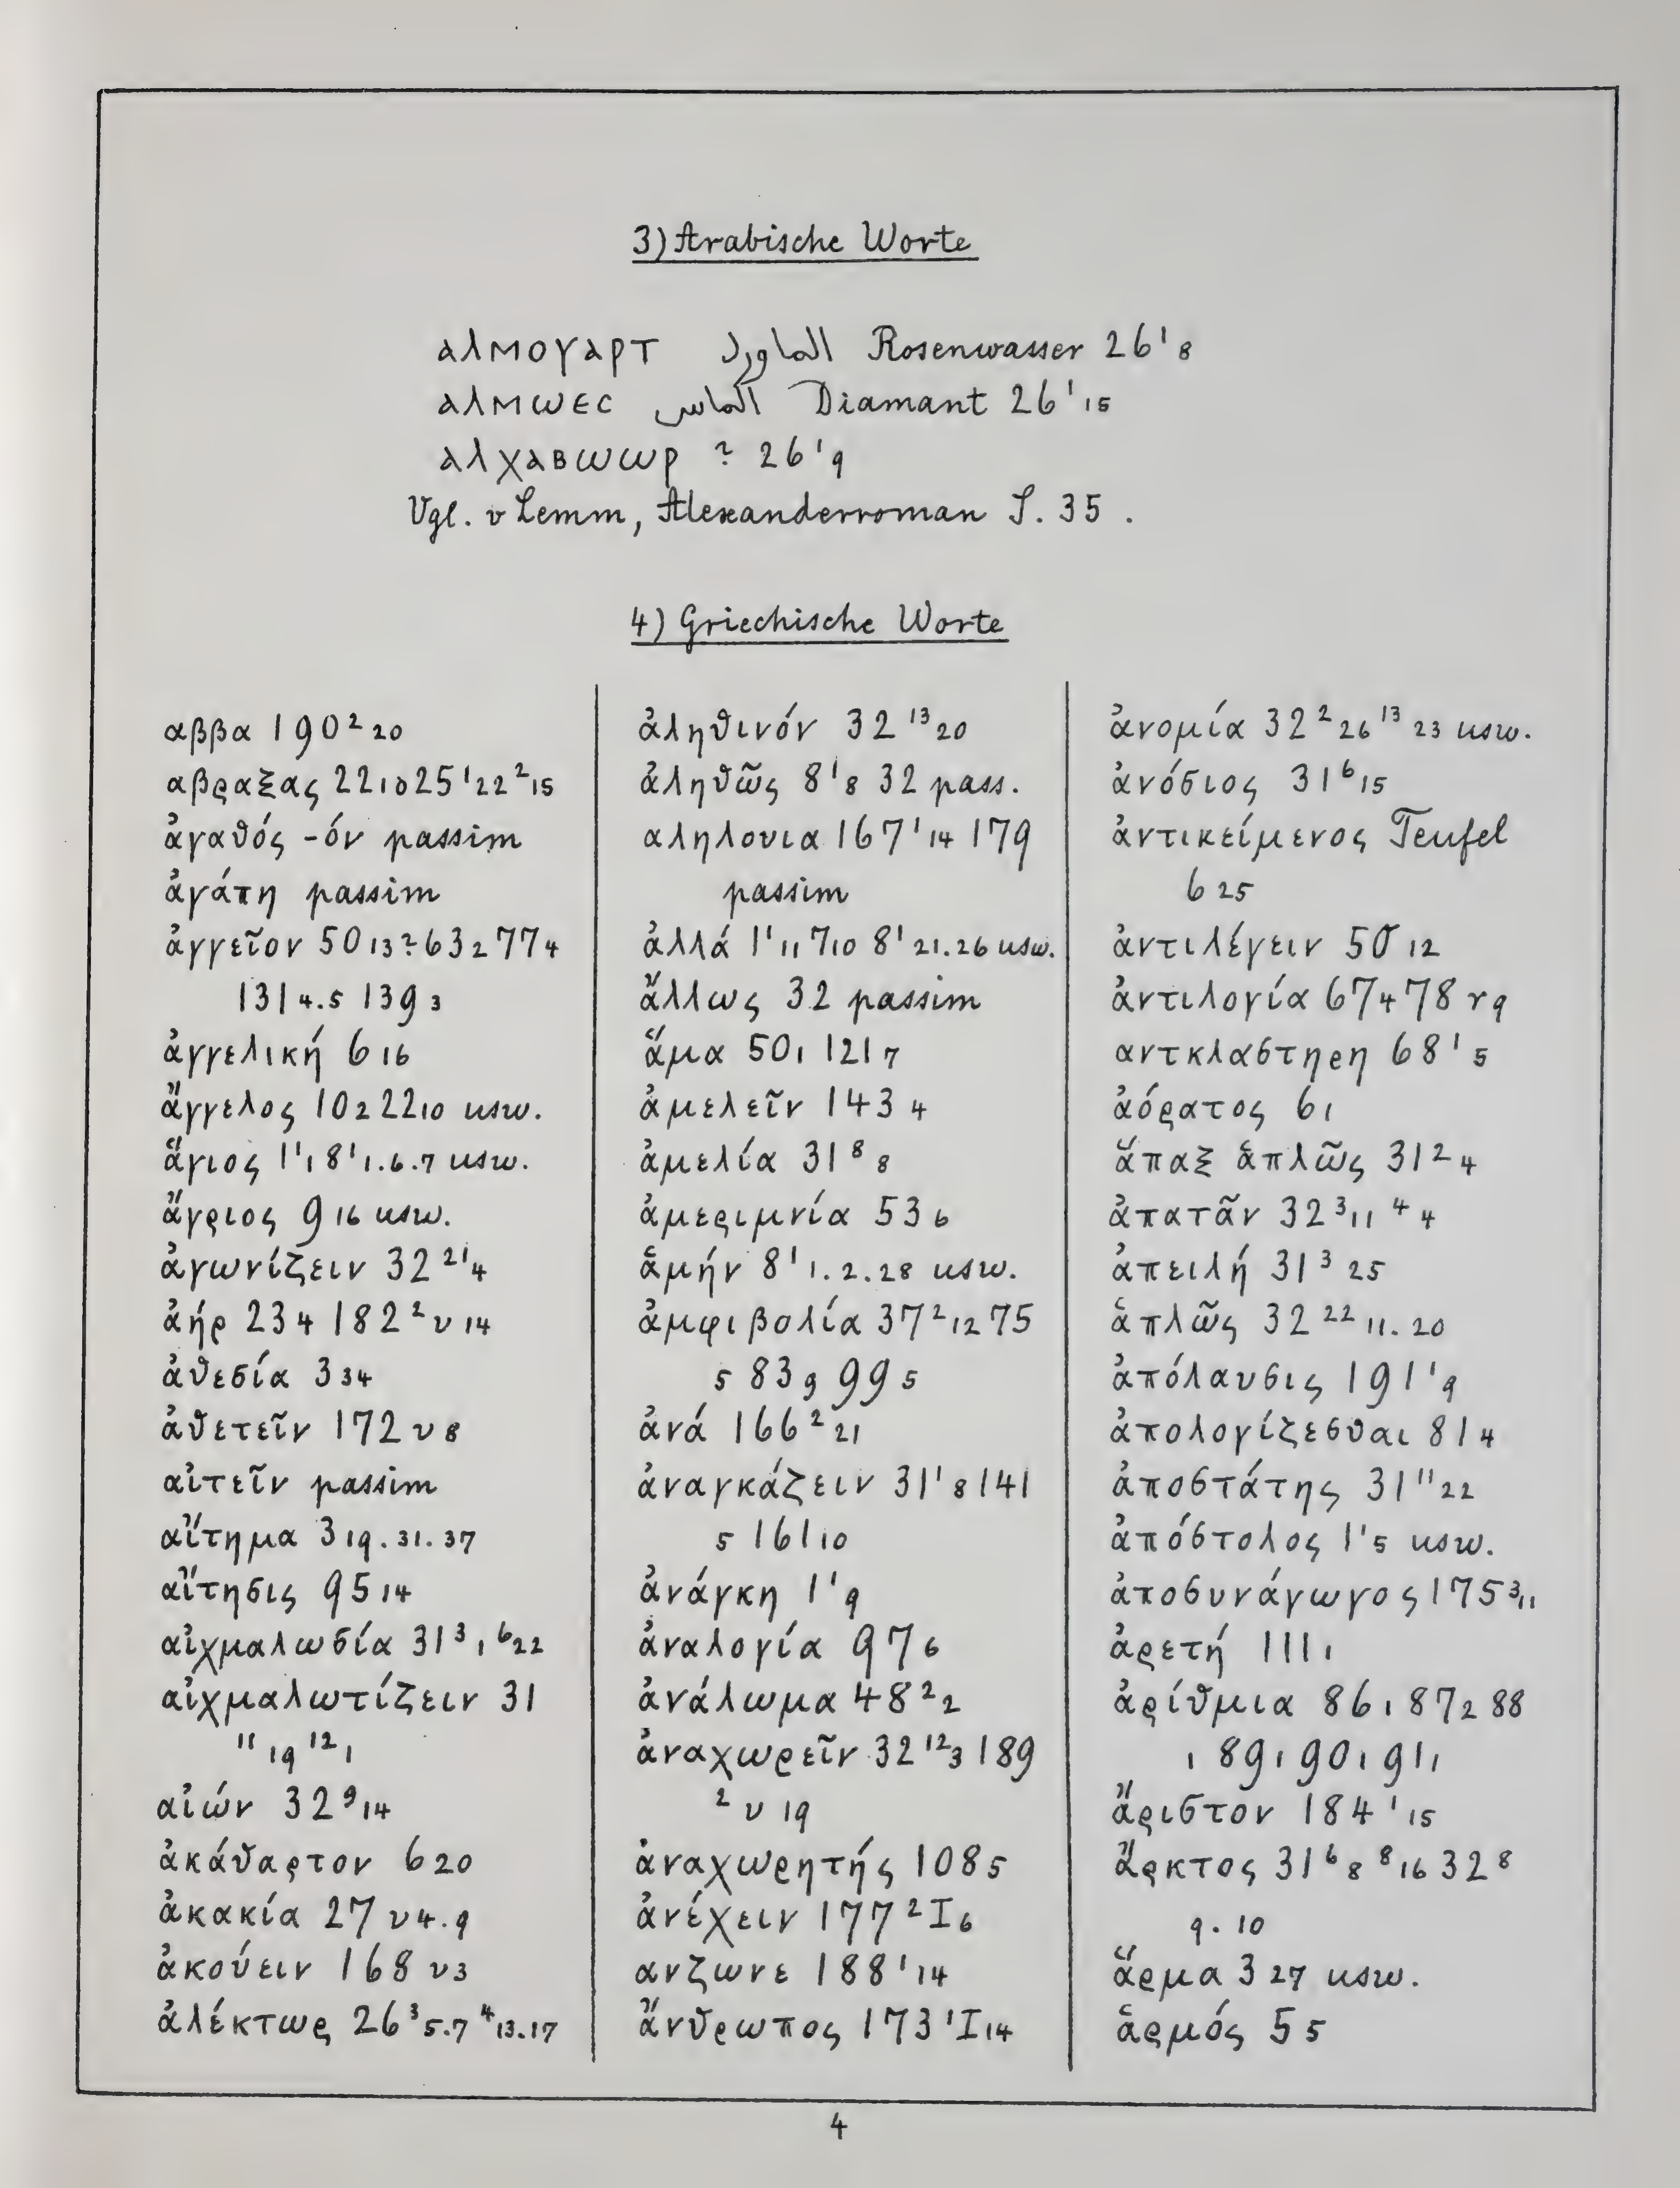 3) Arabische Worte
ⲁⲗⲙⲟⲩⲁⲣⲧ الماورد Rosenwasser 26 ¹ 8
ⲁⲗⲙⲱⲉⲥ الماس Diamant 26 ¹ 15
ⲁⲗⲭⲁⲃⲱⲱⲣ ? 26 ¹ 9
Vgl. v Lemm, Alexanderroman S. 35.
4) Griechische Worte
αββα 190 ² 20
αβραξας 22 10 25 ¹ 22 ² 15
ἀγαθός -όν passim
ἀγάπη passim
ἀγγεῖον 50 13? 63 2 77 4
131 4.5 139 3
ἀγγελική 6 16
ἄγγελος 10 2 22 10 usw.
ἅγιος 1 ¹ 1 8 ¹ 1.6.7 usw.
ἄγριος 9 16 usw.
ἀγωνίζειν 32 ²¹ 4
ἀήρ 23 4 182 ² v 14
ἀθεσία 3 34
ἀθετεῖν 172 v 8
αἰτεῖν passim
αἴτημα 3 19.31.37
αἴτησις 95 14
αἰχμαλωσία 31 ³ 1 ⁶ 22
αἰχμαλωτίζειν 31
¹¹ 19 ¹² 1
αἰών 32 ⁹ 14
ἀκάθαρτον 6 20
ἀκακία 27 v 4.9
ἀκούειν 168 v 3
ἀλέκτωρ 26 ³ 5.7 ⁴ 13.17
ἀληθινόν 32 ¹³ 20
ἀληθῶς 8 ¹ 8 32 pass.
αληλουια 167 ¹ 14 179
passim
ἀλλά 1 ¹ 11 7 10 8 ¹ 21.26 usw.
ἄλλως 32 passim
ἅμα 50 1 121 7
ἀμελεῖν 143 4
ἀμελία 31 ⁸ 8
ἀμεριμνία 53 6
ἁμήν 8 ¹ 1.2.28 usw.
ἀμφιβολία 37 ² 12 75
5 83 9 99 5
ἀνά 166 ² 21
ἀναγκάζειν 31 ¹ 8 141
5 161 10
ἀνάγκη 1 ¹ 9
ἀναλογία 97 6
ἀνάλωμα 48 ² 2
ἀναχωρεῖν 32 ¹² 3 189
² v 19
ἀναχωρητής 108 5
ἀνέχειν 177 ² I 6
ανζωνε 188 ¹ 14
ἄνθρωπος 173 ¹ I 14
ἀνομία 32 ² 26 ¹³ 23 usw.
ἀνόσιος 31 ⁶ 15
ἀντικείμενος Teufel
6 25
ἀντιλέγειν 50 12
ἀντιλογία 67 4 78 r 9
αντκλαστηρη 68 ¹ 5
ἀόρατος 6 1
ἅπαξ ἁπλῶς 31 ² 4
ἀπατᾶν 32 ³ 11 ⁴ 4
ἀπειλή 31 ³ 25
ἁπλῶς 32 ²² 11.20
ἀπόλαυσις 191 ¹ 9
ἀπολογίζεσθαι 81 4
ἀποστάτης 31 ¹¹ 22
ἀπόστολος 1 ¹ 5 usw.
ἀποσυνάγωγος 175 ³ 11
ἀρετή 111 1
ἀρίθμια 86 1 87 2 88
1 89 1 90 1 91 1
ἄριστον 184 ¹ 15
ἄρκτος 31 ⁶ 8 ⁸ 16 32 ⁸
9.10
ἅρμα 3 27 usw.
ἁρμός 5 5
4